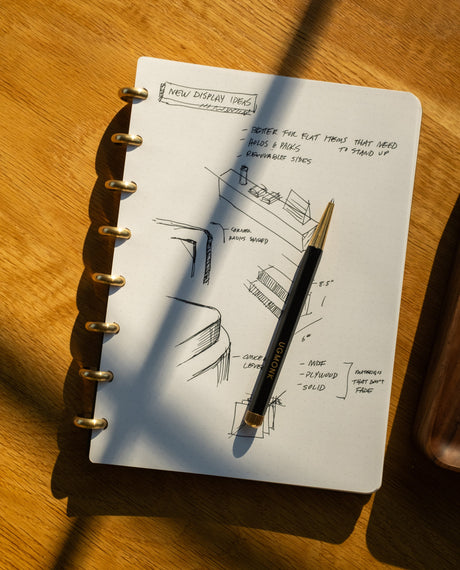 NEW DISPLAY IDEAS
- BETTER FOR FLAT ITEMS THAT NEED
TO STAND UP
HOLDS 6 PACKS
- REMOVABLE SIDES
CORNER
8.5"
6"
- MDF
- PLYWOOD
- SOLID
THAT DON'T
FADE
UGMONK